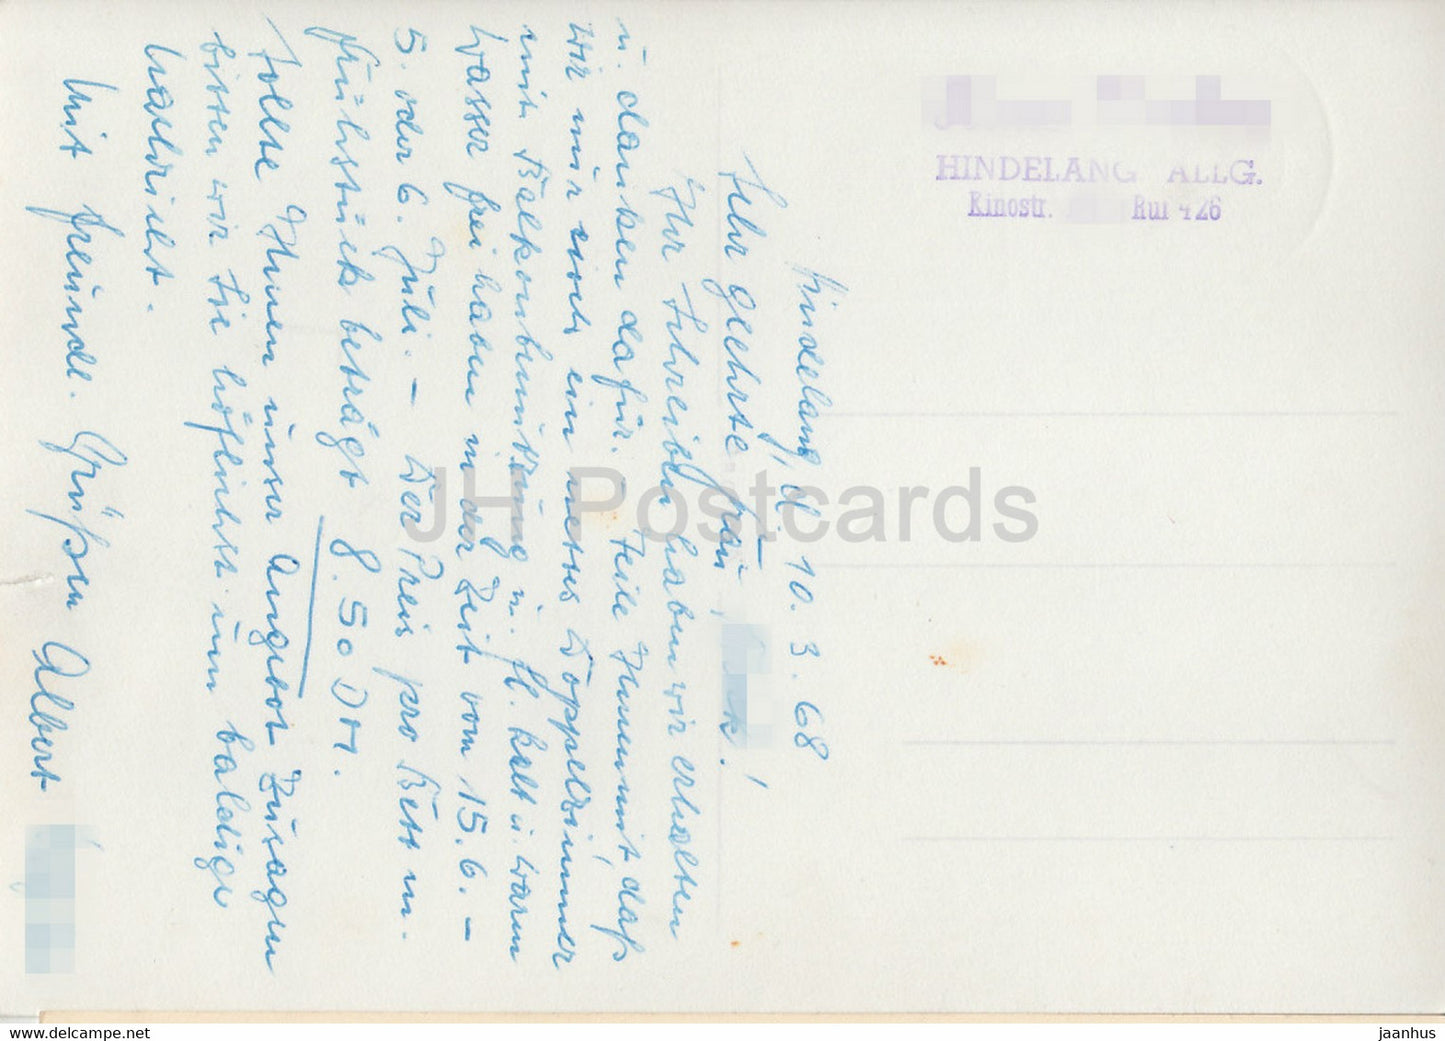 HINDELANG ALLG.
Ringstr. Ruf 426
Hindelang, d. 10.3.68
Sehr geehrte Frau !
Ihr Schreiben haben wir erhalten
u. danken dafür. Teile Ihnen mit, daß
wir nur noch ein nettes Doppelzimmer
mit Balkonbenützung u. fl. kalt u. warm
Wasser frei haben in der Zeit vom 15.6. –
5. oder 6. Juli. – Der Preis pro Bett m.
Frühstück beträgt 8.50 DM.
Sollte Ihnen unser Angebot zusagen
bitten wir Sie höflichst um baldige
Nachricht.
Mit freundl. Grüßen Albert
JH Postcards
www.delcampe.net
jaanhus